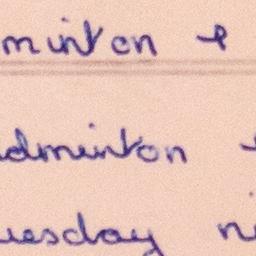 minton &
dminton
uesday ni